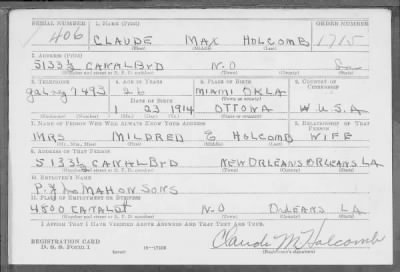 SERIAL NUMBER 1. NAME (Print) ORDER NUMBER
406 CLAUDE MAX HOLCOMB 1715
(First) (Middle) (Last)
2. ADDRESS (Print)
5133 1/2 CANAL BVD N.O La
(Number and street or R. F. D. number) (Town) (County) (State)
3. TELEPHONE 4. AGE IN YEARS 5. PLACE OF BIRTH 6. COUNTRY OF CITIZENSHIP
galvez 7493 26 MIAMI OKLA
DATE OF BIRTH (Town or county)
1 23 1914 OTTOWA U.S.A
(Mo.) (Day) (Yr.) (State or country)
7. NAME OF PERSON WHO WILL ALWAYS KNOW YOUR ADDRESS 8. RELATIONSHIP OF THAT PERSON
MRS MILDRED E HOLCOMB WIFE
(Mr., Mrs., Miss) (First) (Middle) (Last)
9. ADDRESS OF THAT PERSON
5133 1/2 CANAL BVD NEW ORLEANS ORLEANS LA
(Number and street or R. F. D. number) (Town) (County) (State)
10. EMPLOYER'S NAME
MAHON SONS
11. PLACE OF EMPLOYMENT OR BUSINESS
4800 CANAL ST N.O ORLEANS LA
(Number and street or R. F. D. number) (Town) (County) (State)
I AFFIRM THAT I HAVE VERIFIED ABOVE ANSWERS AND THAT THEY ARE TRUE.
REGISTRATION CARD
D. S. S. Form 1 (over) 16—17105 Claude M Holcomb
(Registrant's signature)